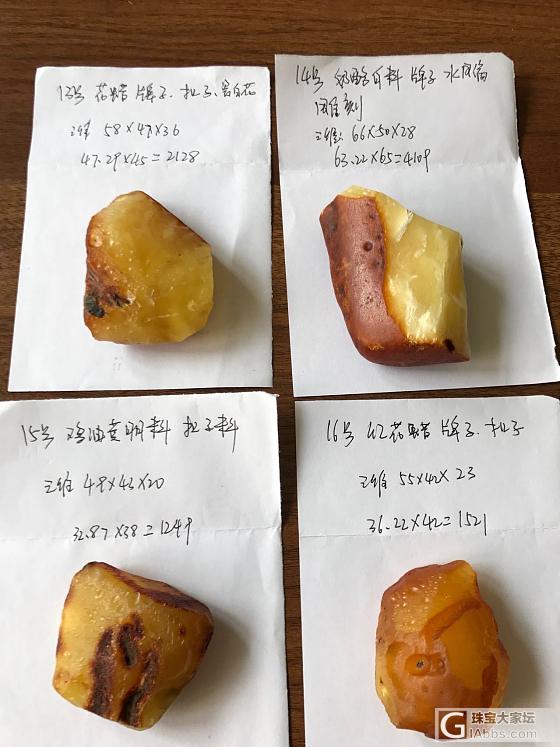 13号 花蜡 牌子、扣子、留白花
三维 58×47×36
47.29×45=2128
14号 奶酪白料 牌子 水风偏
随型刻
三维: 66×50×28
63.22×65=4109
15号 鸡油黄明料 扣子料
三维 49×43×20
32.87×38=1249
16号 红花蜡 牌子、扣子
三维 55×42×23
36.22×42=1521
珠宝大家坛
GIAbbs.com